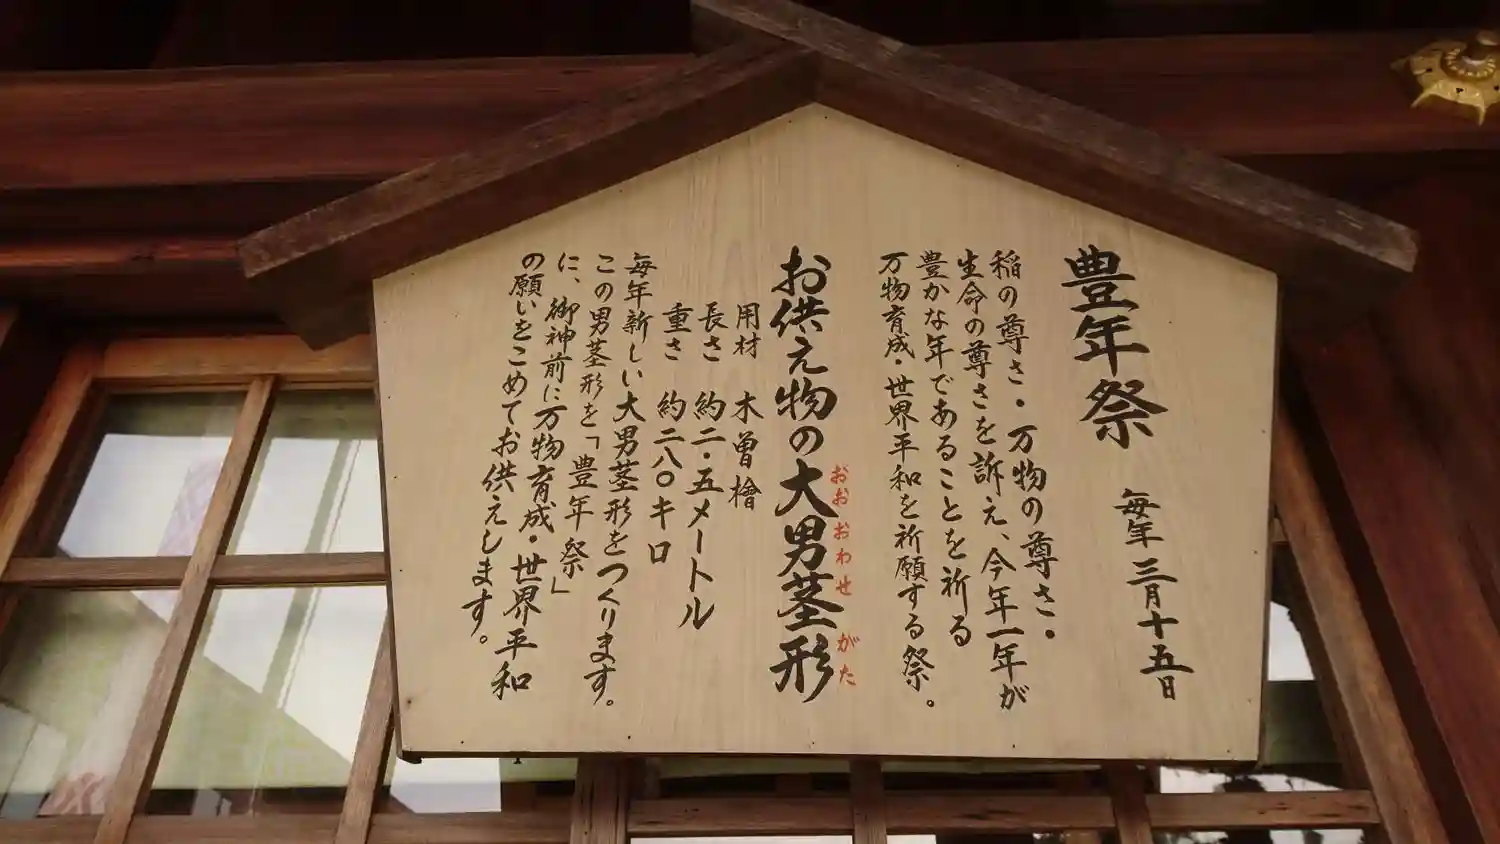 豊年祭 毎年 三月十五日
稲の尊さ・万物の尊さ・
生命の尊さを訴え、今年一年が
豊かな年であることを祈る
万物育成・世界平和を祈願する祭。
お供え物の大男茎形
おお おわせ がた
用材 木曽檜
長さ 約二・五メートル
重さ 約二八〇キロ
毎年新しい大男茎形をつくります。
この男茎形を「豊年祭」
に、御神前に万物育成・世界平和
の願いをこめてお供えします。